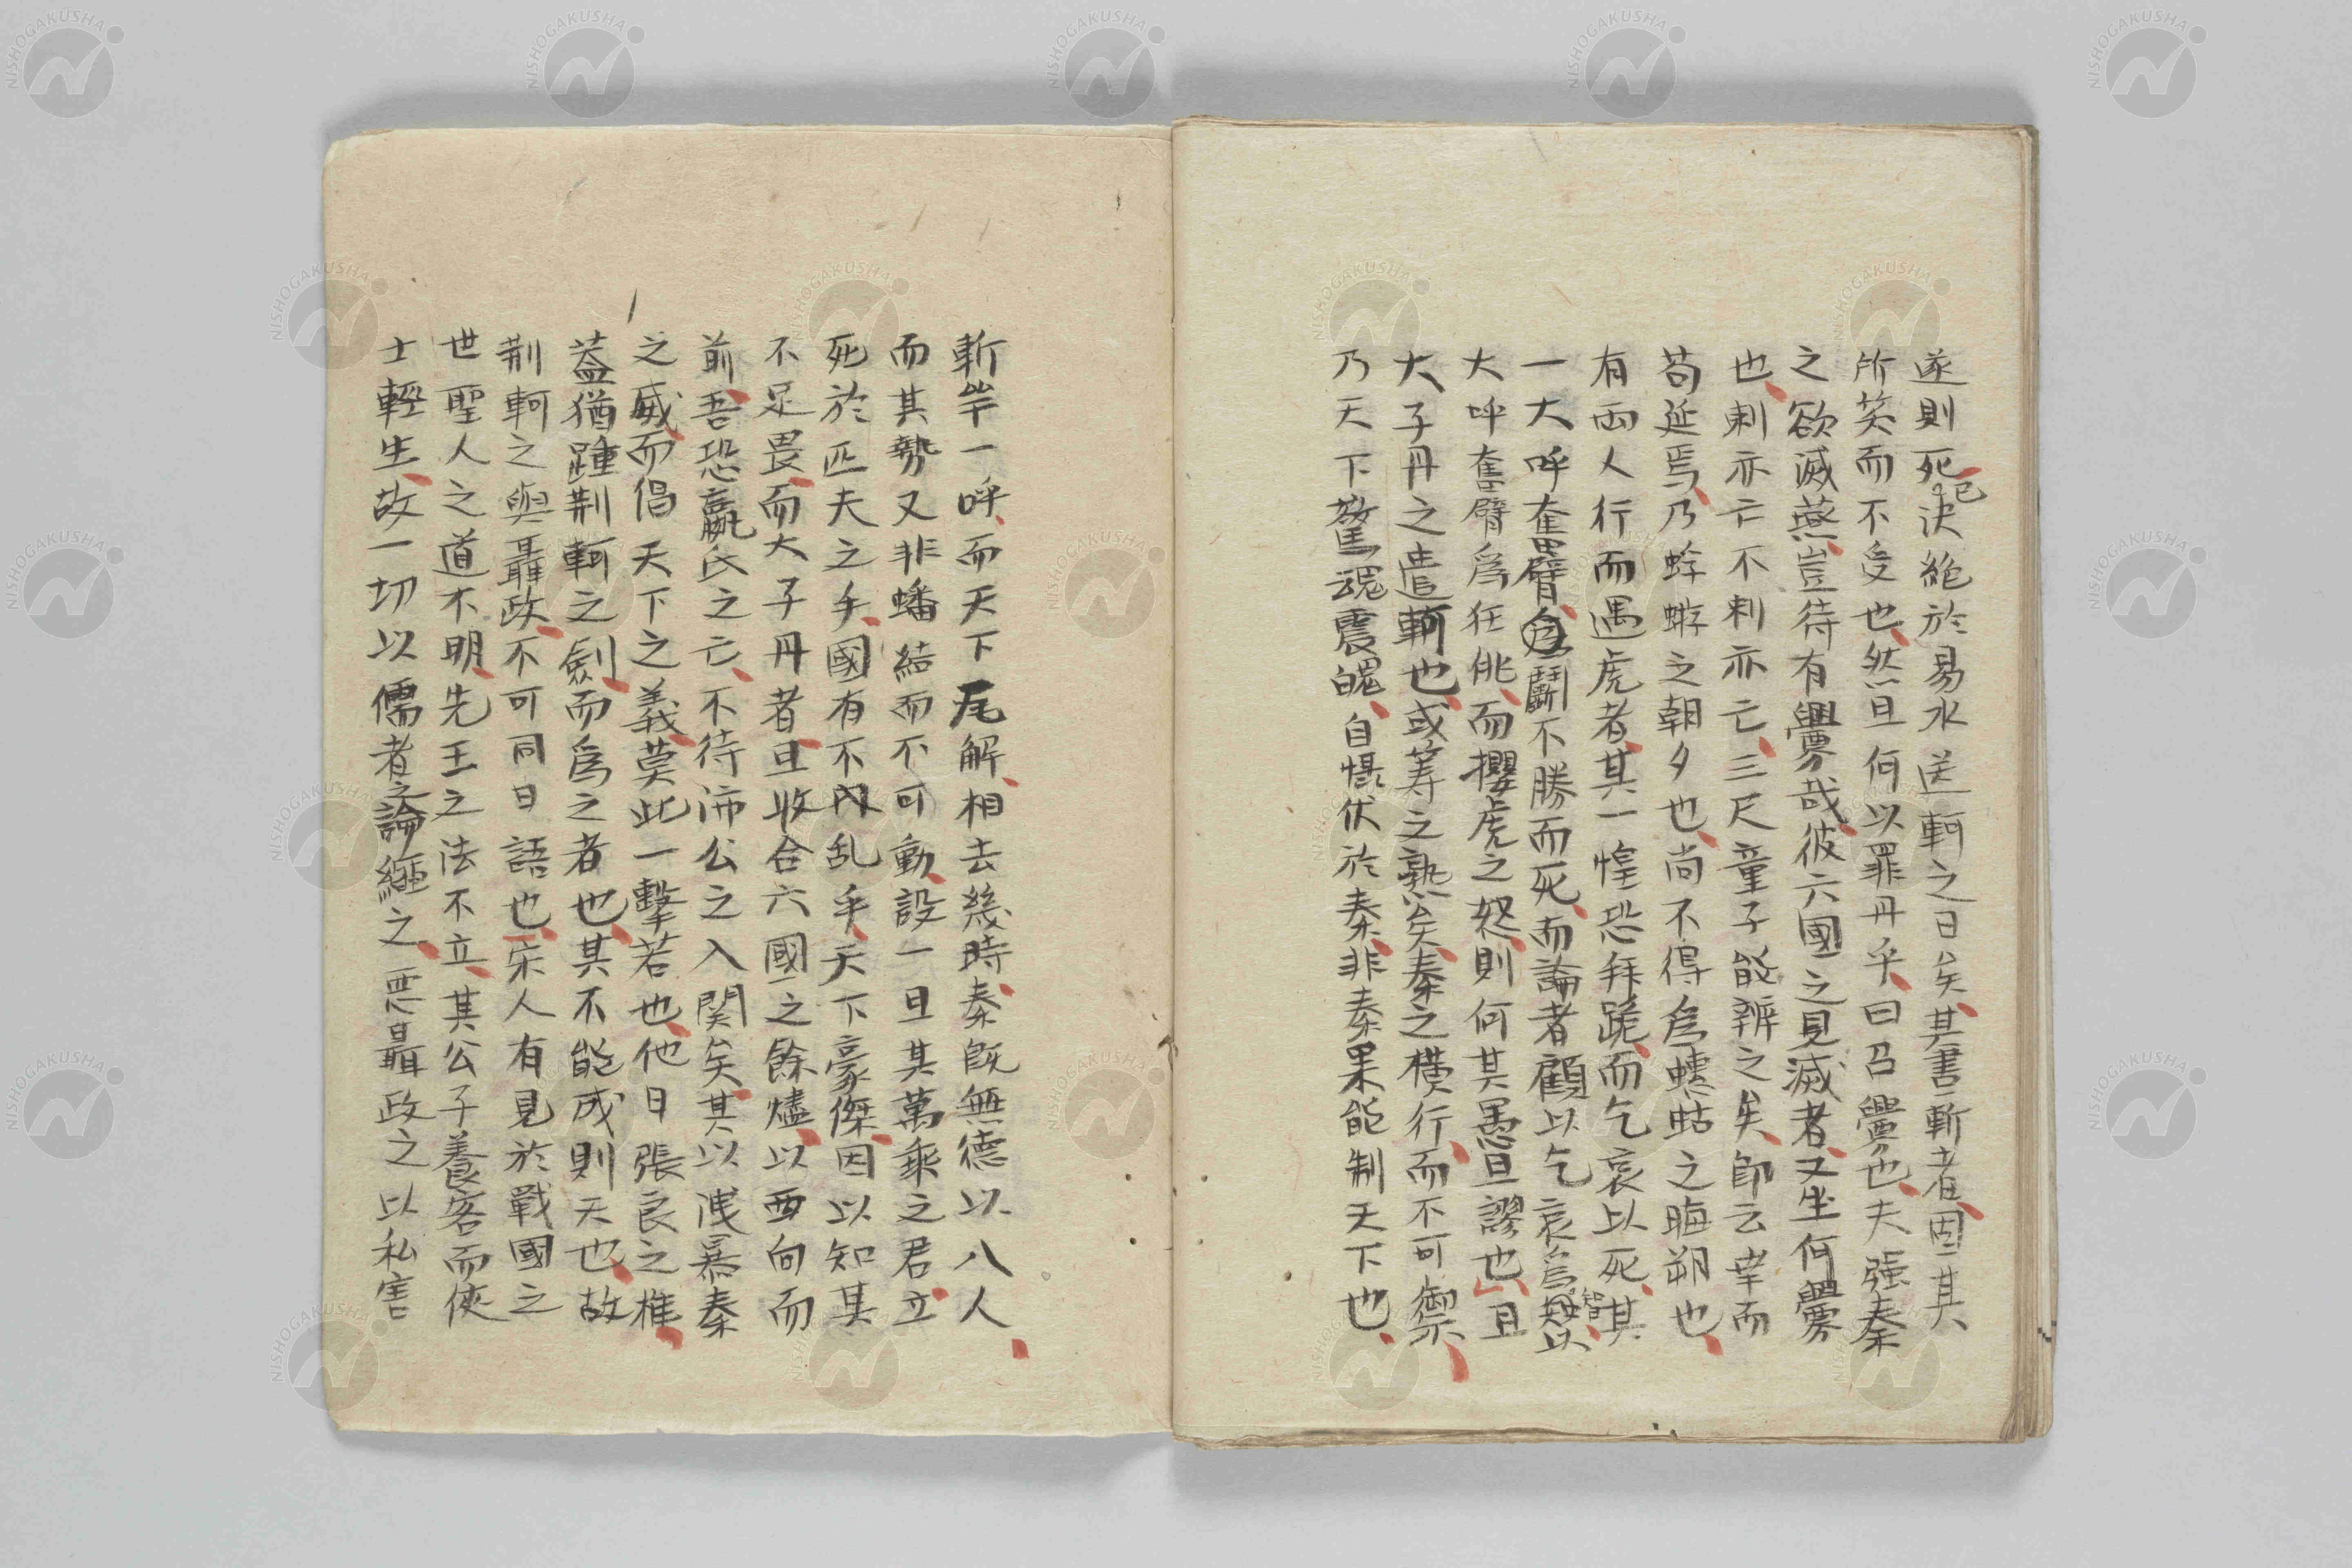 遂則死已决絶於易水送軻之日矣其書斬者固其
所笑而不受也然旦何以罪丹乎曰召釁也夫強秦
之欲滅燕豈待有釁哉彼六國之見滅者又坐何釁
也刺亦亡不刺亦亡三尺童子能辨之矣即云幸而
苟延焉乃蜉蝣之朝夕也尚不得爲蟪蛄之晦朔也
有兩人行而遇虎者其一惶恐拜跪而乞哀以死其
一大呼奮臂鬪不勝而死而論者顧以乞哀爲智以
大呼奮臂爲狂佻而攖虎之怒則何其愚且謬也且
大子丹之遣軻也或筹之熟矣秦之横行而不可禦
乃天下驚魂震魄自慑伏於秦非秦果能制天下也
斬竿一呼而天下尾解相去幾時秦既無德以八人
而其勢又非蟠結而不可動設一旦其萬乘之君立
死於匹夫之手國有不内乱乎天下豪傑因以知其
不足畏而大子丹者且收合六國之餘燼以西向而
前吾恐嬴氏之亡不待沛公之入関矣其以洩暴秦
之威而倡天下之義莫此一擊若也他日張良之椎
葢猶踵荆軻之劍而爲之者也其不能成則天也故
荆軻之與聶政不可同日語也宋人有見於戰國之
世聖人之道不明先王之法不立其公子養客而俠
士輕生故一切以儒者之論繩之惡聶政之以私害